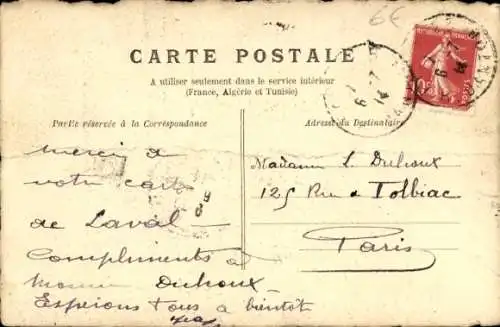 6€
CARTE POSTALE
A utiliser seulement dans le service intérieur
(France, Algérie et Tunisie)
Partie réservée à la Correspondance
Adresse du Destinataire
Merci de
votre carte
de Laval
Compliments à
Duhoux
Espérons tous à bientôt
Madame L. Duhoux
125 Rue de Tolbiac
Paris